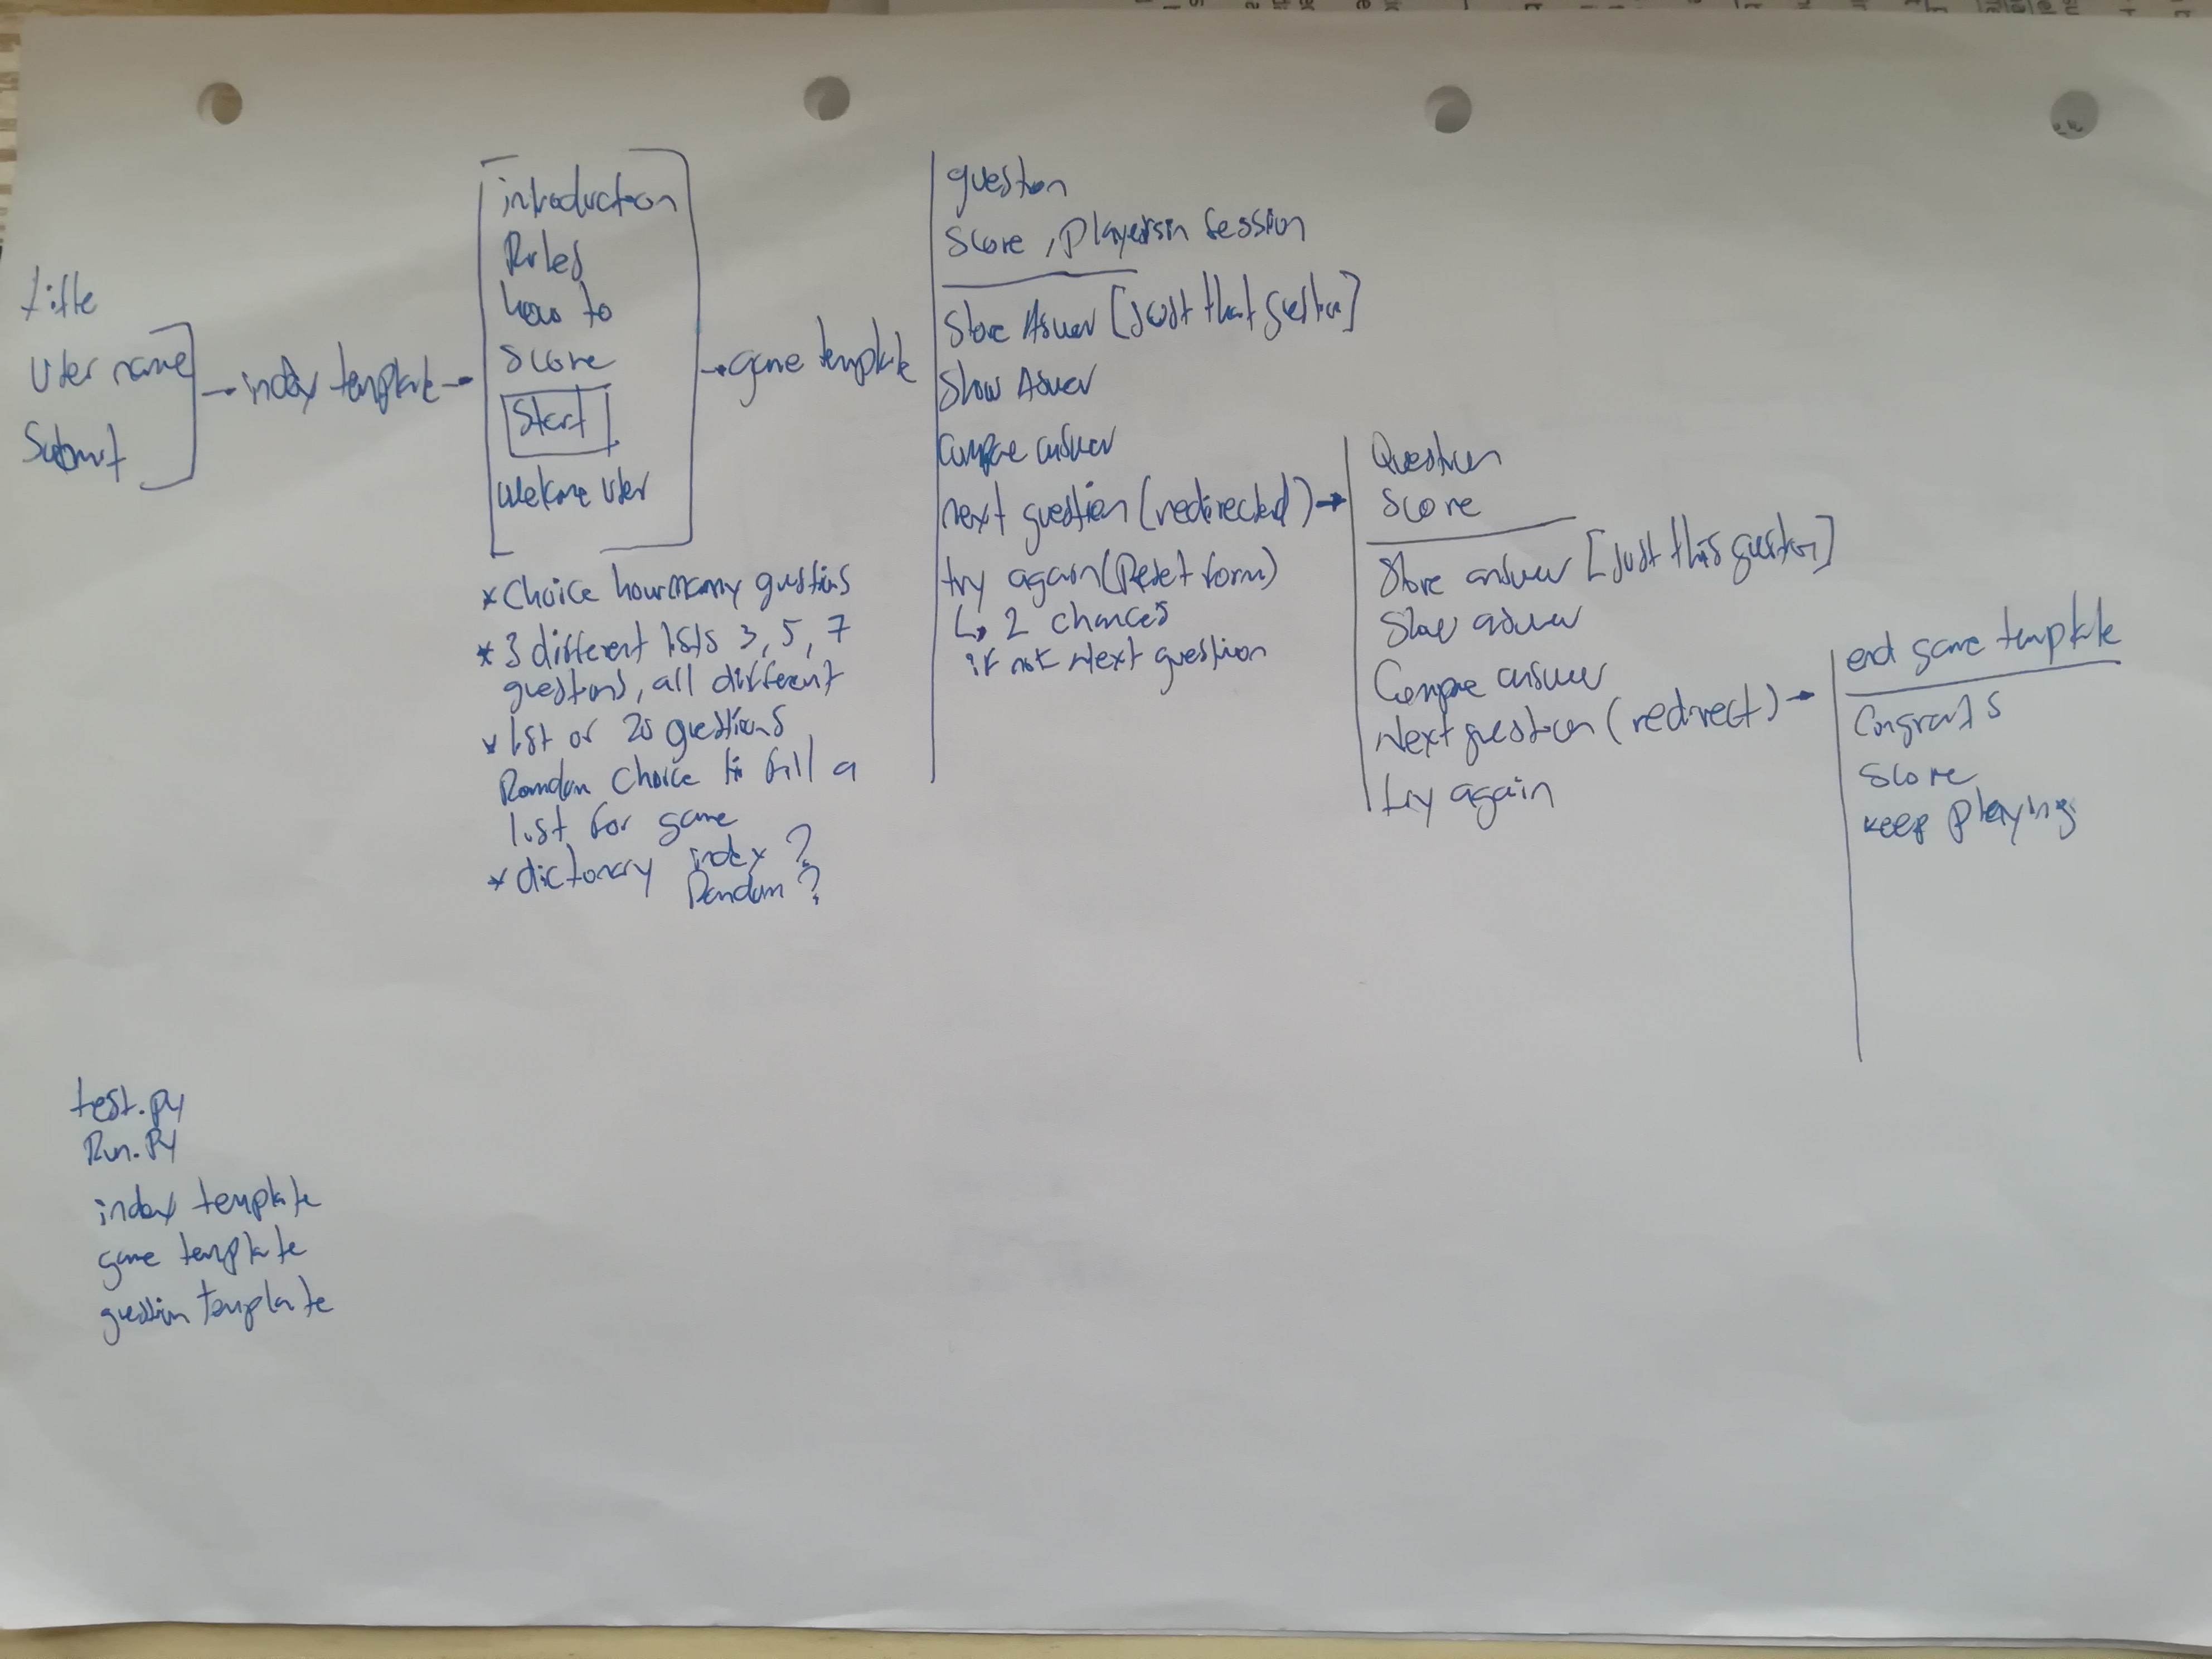 title
User name
Submit
index template
introduction
Rules
how to
Score
Start
Welcome User
* Choice how many questions
* 3 different lists 3, 5, 7
questions, all different
* list of 20 questions
Random Choice to fill a
list for game
* dictionary index ?
Random ?
game template
question
Score, Players in Session
Store Aswer [just that question]
Show Aswer
Compare answer
next question (redirected)
try again (Reset form)
2 chances
if not Next question
Question
Score
Store answer [just this question]
Show aswer
Compare answer
Next question (redirect)
try again
end game template
Congrats
Score
keep playing
test.py
Run.py
index template
game template
question template